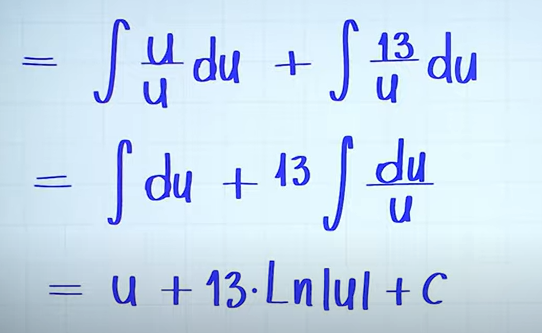 = ∫ u/u du + ∫ 13/u du
= ∫ du + 13 ∫ du/u
= u + 13·Ln|u| + C